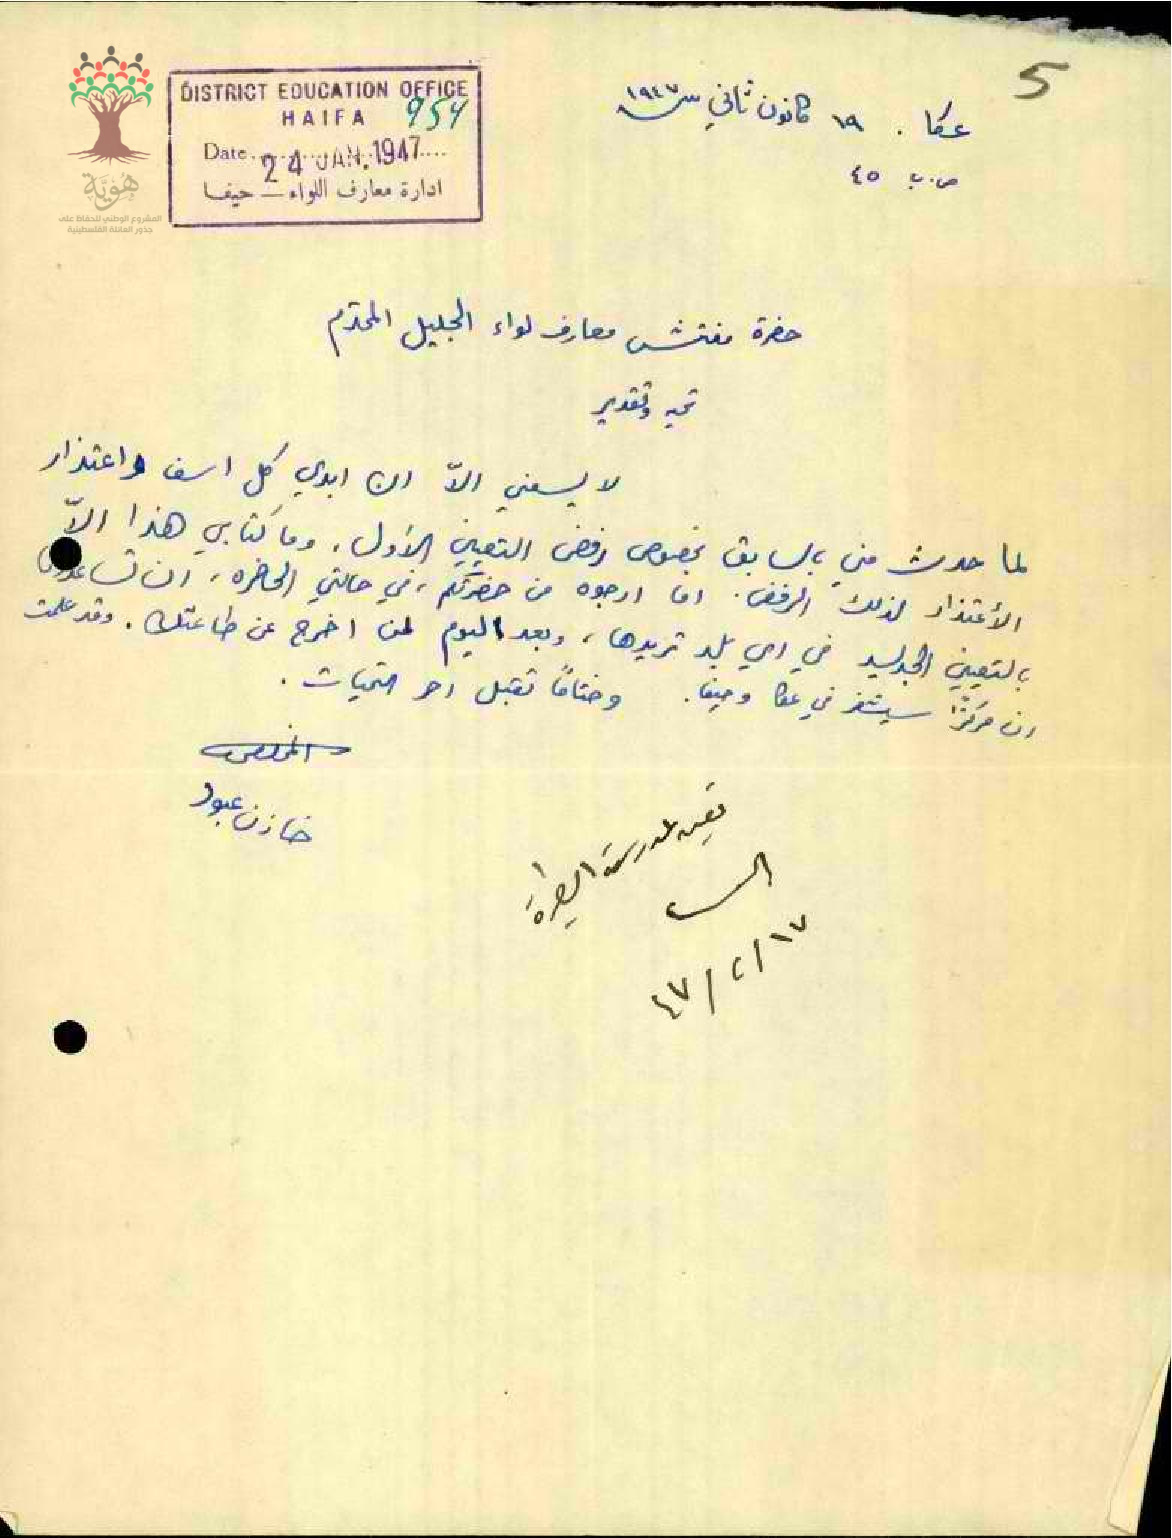 5
عكا . ١٩ كانون ثاني سنة ١٩٤٧
ص.ب ٤٥
DISTRICT EDUCATION OFFICE
HAIFA 954
Date 24 JAN. 1947
ادارة معارف اللواء – حيفا
هُوِيَّة
المشروع الوطني للحفاظ على
جذور العائلة الفلسطينية
حضرة مفتش معارف لواء الجليل المحترم
تحيه وتقدير
لا يسعني الاّ ان ابدي كل اسف واعتذار
لما حدث مني بالسابق بخصوص رفض التعيين الأول. وما كتابي هذا الاّ
الأعتذار لذلك الرفض. اما ارجوه من حضرتكم، في حالتي الحاضره، ان تساعدوني
بالتعيين الجديد في اي بلد تريدها، وبعد اليوم لن اخرج عن طاعتك. وقد علمت
ان مركزًا سيشغر في عكا وحيفا. وختامًا تقبل احر التحيات.
المخلص
خازن عبود
١٧/٢/٤٧